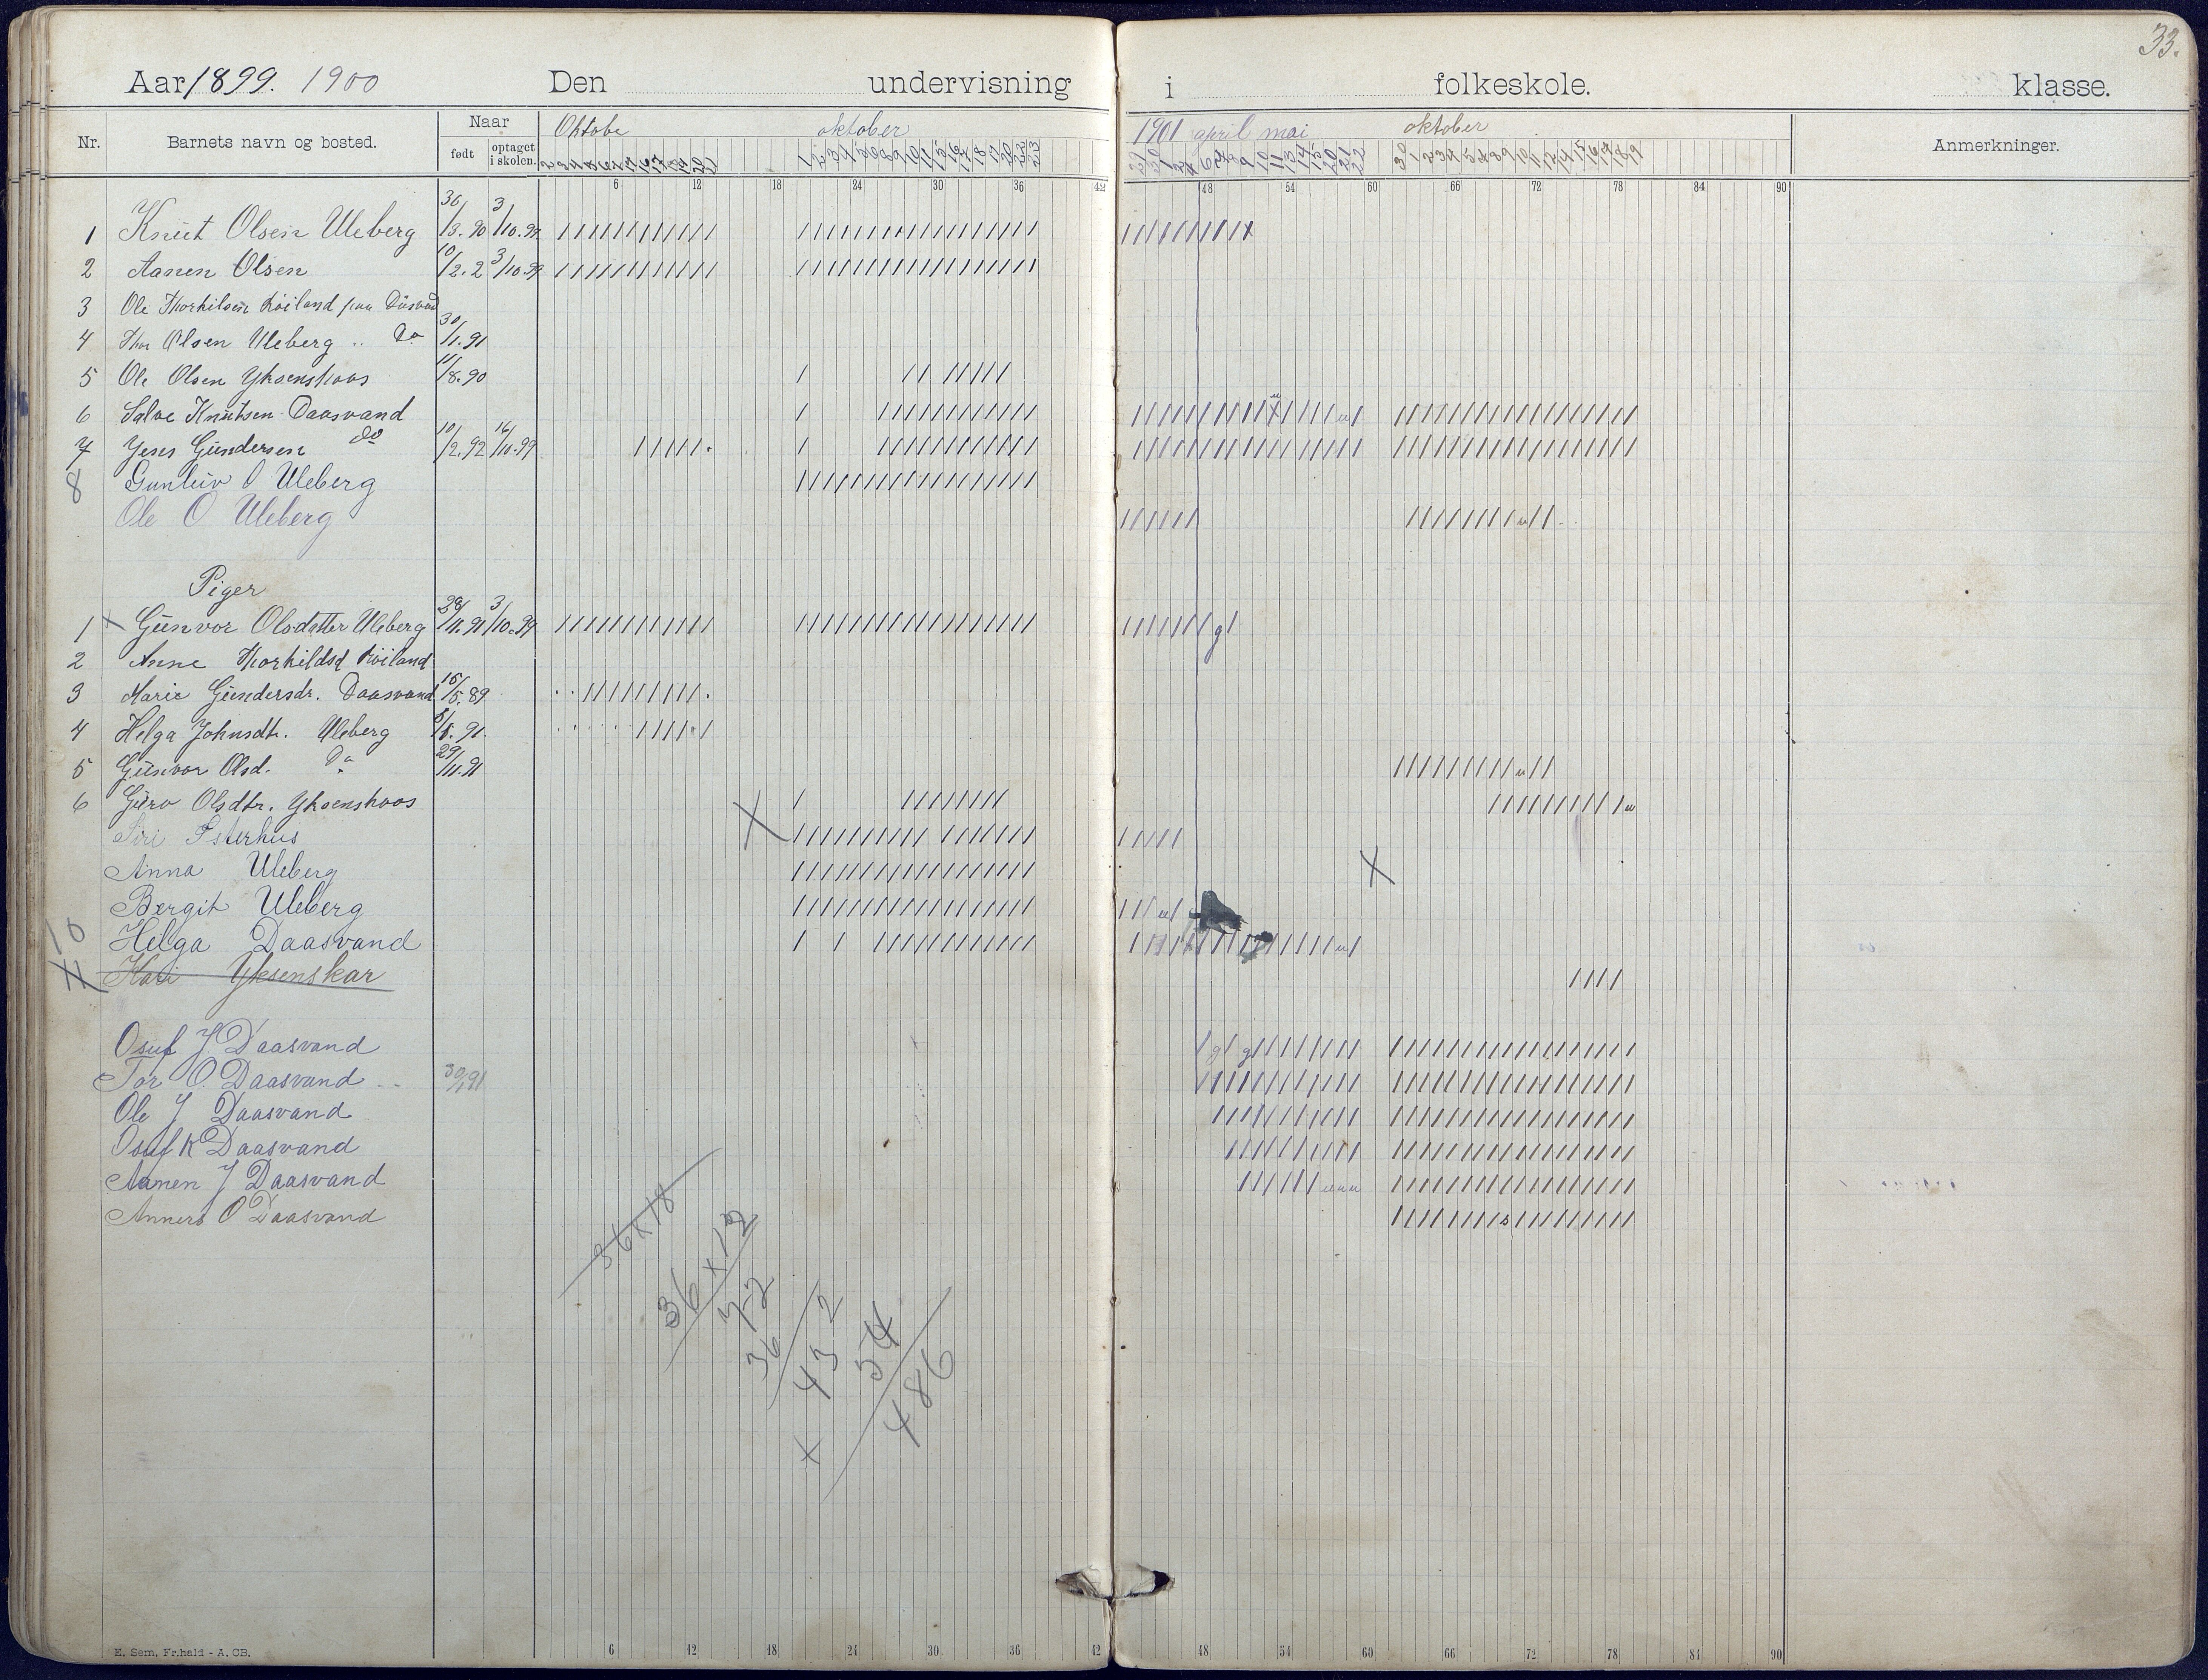 33.
Aar 1899. 1900 Den undervisning i folkeskole. klasse.
Nr. Barnets navn og bosted. Naar født optaget i skolen. Oktobe oktober 1901 april mai oktober Anmerkninger.
6 12 18 24 30 36 42 48 54 60 66 72 78 84 90
1 Knut Olsen Uleberg 30/3.90 3/10.99
2 Aanen Olsen 10/2.2 3/10.99
3 Ole Thorkilsen Röiland paa
4 Thor Olsen Uleberg .. Do 30/1.91
5 Ole Olsen Yksenskaas 11/8.90
6 Salve Knutsen Daasvand
7 Jens Gundersen do 10/2.92 16/10.99
8 Gunleiv O Uleberg
Ole O Uleberg
Piger
1 Gunvor Olsdatter Uleberg 29/11.91 3/10.99
2 Anne Thorkildsd Röiland
3 Marie Gundersdr. Daasvand 16/5.89
4 Helga Johnsdtr. Uleberg 8/8.91.
5 Gunvor Olsd. Do 29/11.91
6 Guro Olsdtr. Yksenskaas
Siri Isterhus
Anna Uleberg
Bergit Uleberg
10 Helga Daasvand
Kari Yksenskar
Osuf J Daasvand
Tor O. Daasvand 30/1 91
Ole J Daasvand
Osuf K Daasvand
Aanen J Daasvand
Anners O Daasvand
36x18
36x12
72
36
432
54
486
6 12 18 24 30 36 42 48 54 60 66 72 78 84 90
E. Sem, Fr.hald - A. CB.